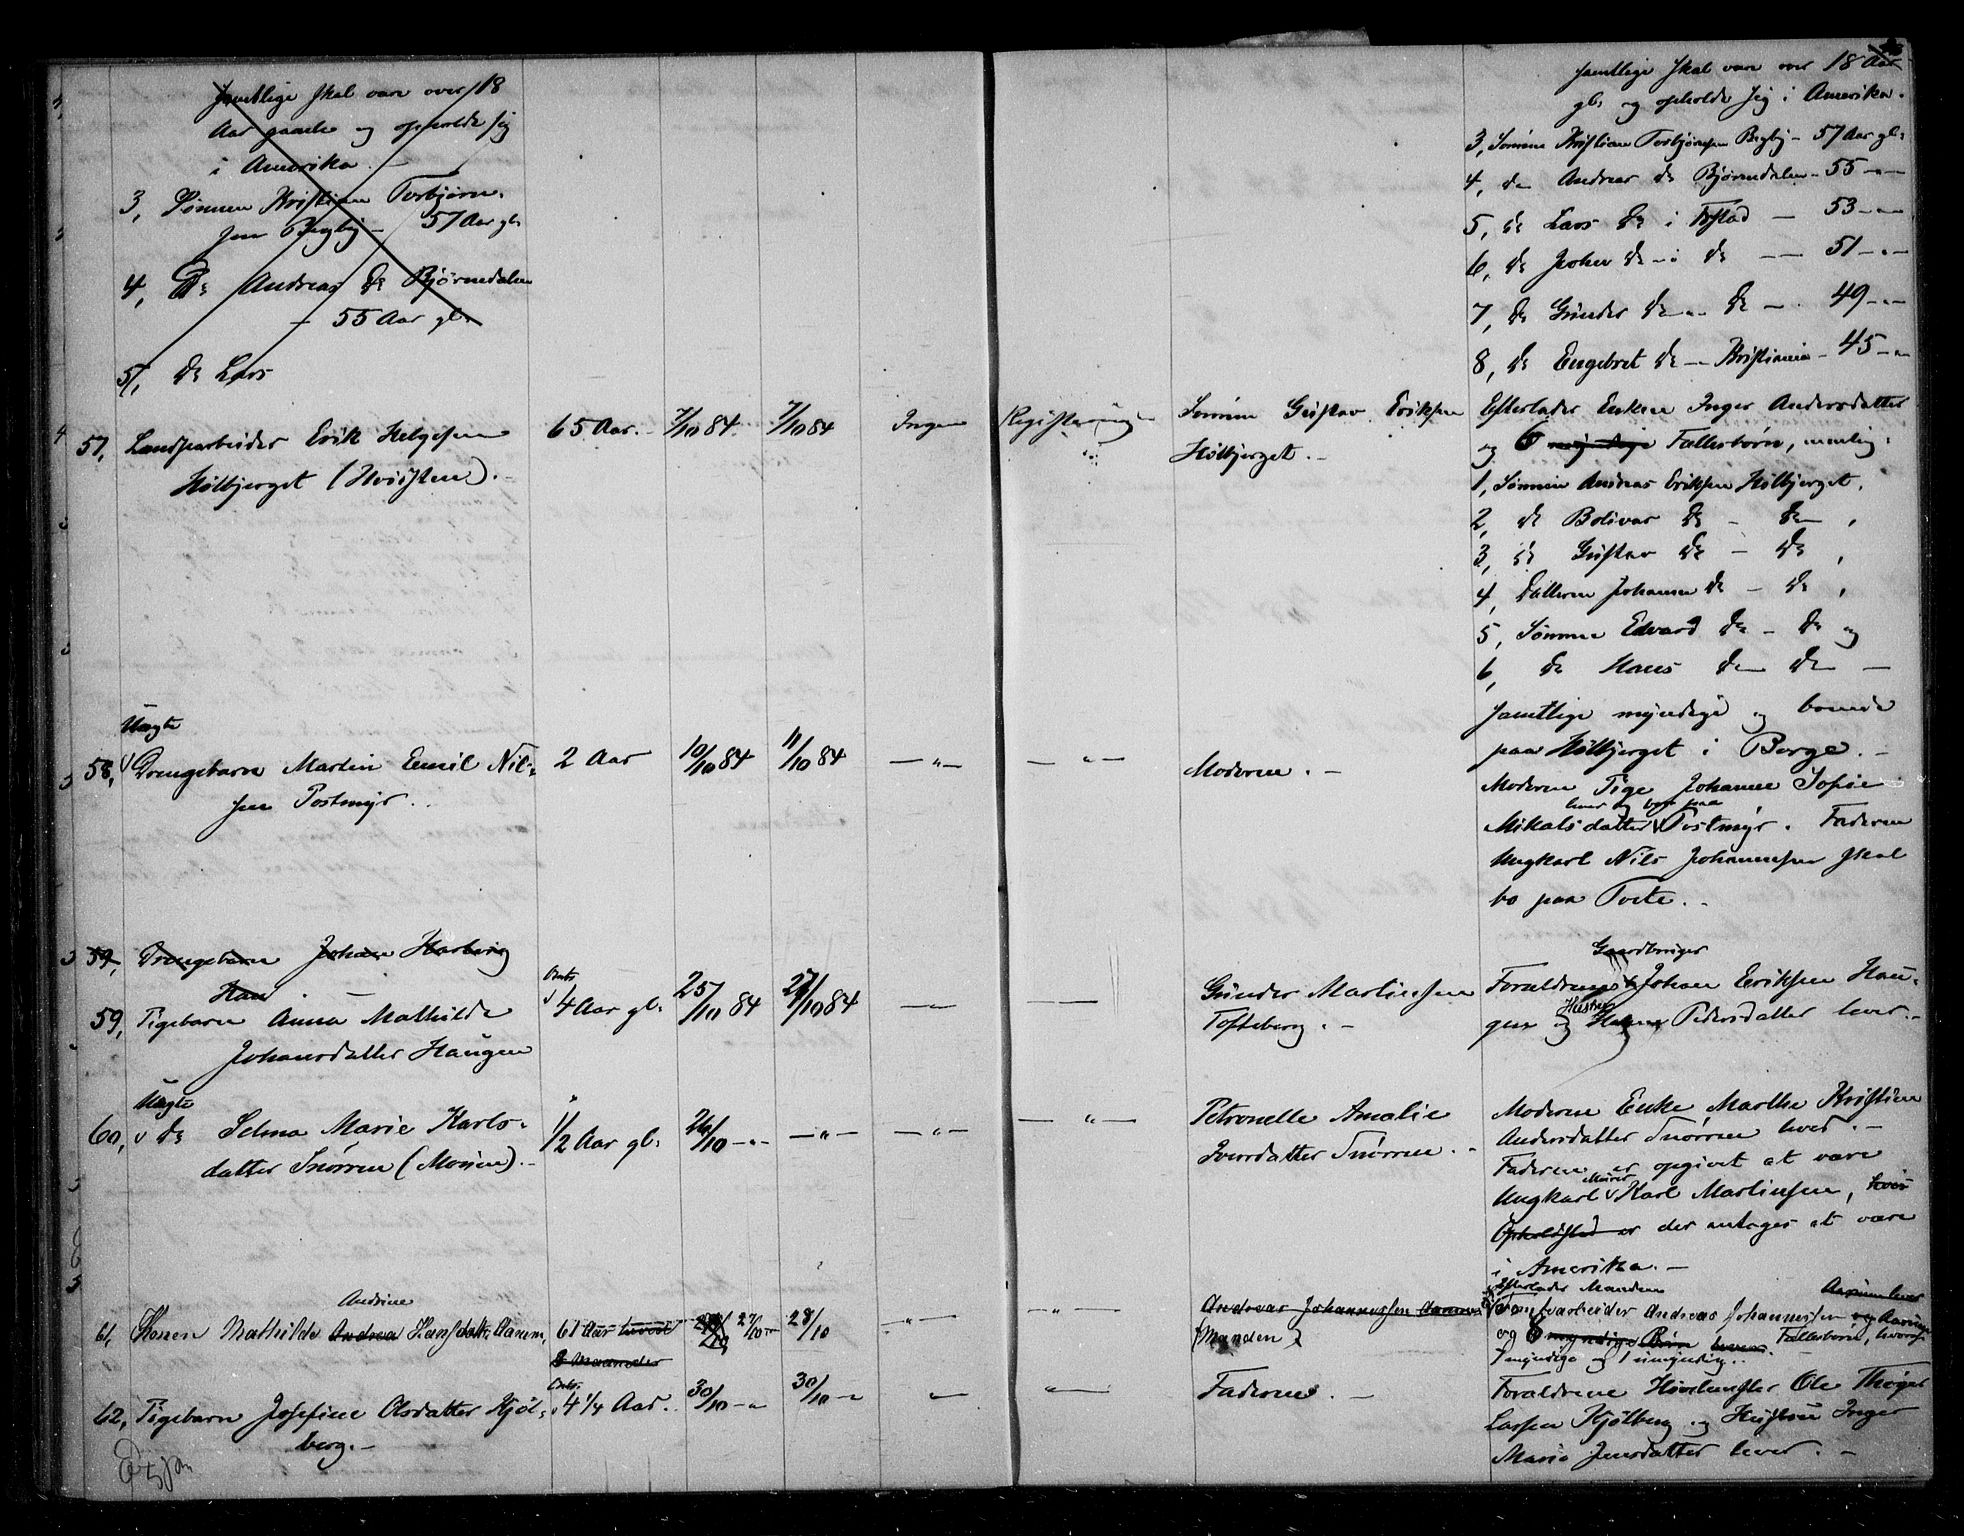 Samtlige skal være over 18
Aar gamle og opholde sig
i Amerika. -
3, Sønnen Kristian Torbjørn-
sen Begby - 57 Aar gl.
4, Do Andreas Do Bjørnedalen
- 55 Aar gl.
5, Do Lars
samtlige skal være over 18 Aar
gl. og opholde sig i Amerika.
3, Sønnen Kristian Torbjørnsen Begby - 57 Aar gl.
4, Do Andreas Do Bjørnedalen - 55 -"-
5, Do Lars Do i Tofstad - 53 -"-
6, Do Johan Do - i Do - 51 -"-
7, Do Günder Do -"- Do - 49 -"-
8, Do Engebret Do -"- Kristiania - 45 -"-
57, Landsarbeider Erik Helgesen 65 Aar. 7/10 84 7/10 84 Ingen Registrering Sønnen Gustav Eriksen
Hølbjerget (Hvidsten). - Hølbjerget. -
Efterlader Enken Inger Andersdatter
og 6 myndige Fællesbørn, nemlig:
1, Sønnen Andreas Eriksen Hølbjerget,
2, Do Bolivar Do - Do,
3, Do Gustav Do - Do,
4, Datteren Johanne Do - Do,
5, Sønnen Edvard Do - Do og
6, Do Hans Do Do -
samtlige myndige og boende
paa Hølbjerget i Borge. -
Uægte
58, Drengebarn Martin Emil Nil- 2 Aar 10/10 84 11/10 84 -"- -"- Moderen. -
sen Postmyr.
Moderen Pige Johanne Sofie
lever og bor paa
Mikalsdatter Postmyr. Faderen
Ungkarl Nils Johannesen skal
bo paa Tvete. -
59, Drengebarn Johan Hartvig
Hau
59, Pigebarn Anna Mathilde Omtr. 4 Aar gl. 25/10 84 27/10 84 -"- - Günder Martinsen
Johansdatter Haugen Tofteberg. -
Gaardbruger
Forældrene Johan Eriksen Hau-
gen og Hustru Pedersdatter lever. -
Uægte
60, Do Selma Marie Karls- 1/2 Aar gl. 26/10 -"- -"- -"- -"- Petronelle Amalie
datter Snørren (Moum). - Iversdatter Snørren. -
Moderen Enke Marthe Kristine
Andersdatter Snørren lever. -
Faderen er opgivet at være
Murer
Ungkarl Karl Martinsen, hvis
Opholdsted er der antages at være
i Amerika. -
Andrine
61, Konen Mathilde Andrea Hansdatter Aanem, 61 Aar 27/10 -"- 28/10 -"- -"- Andreas Johannessen Aanem
8 Maaneder (Manden)
Efterlader Manden
Tomtearbeider Andreas Johannessen
og 8 myndige Børn lever. Fællesbørn, hvoraf
7 myndige og 1 umyndig. -
62, Pigebarn Josefine Olsdatter Kjøl- Omtr. 4 1/4 Aar. 30/10 -"- 30/10 -"- -"- -"- Faderen. -
berg. -
Forældrene Høvelmester Ole Thøger
Larsen Kjølberg og Hustru Inger
Marie Jensdatter lever. -